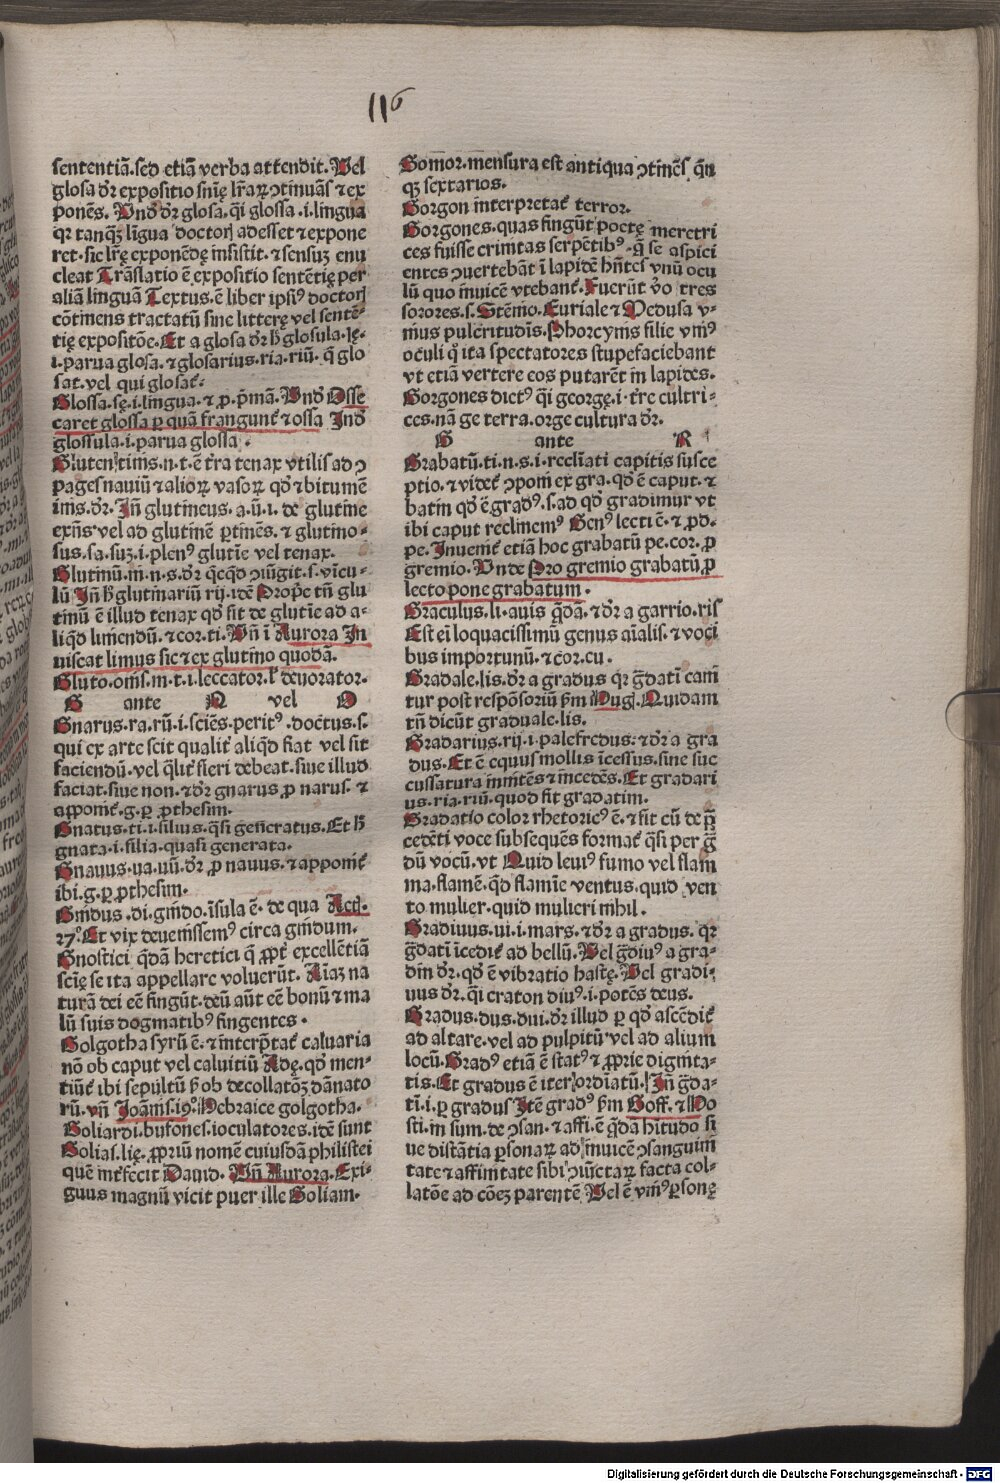 116
sententiā.sed etiā verba attendit.Vel
glosa dr̄ expositio sn̄ię lr̄aꝝ ↄtinuās ⁊ ex
ponēs. Vnd̄ dr̄ glosa.q̄i glossa.i.lingua
qꝛ tanqꝫ līgua doctorꝭ adesset ⁊ expone
ret.sic lr̄ę exponēdę insistit.⁊ sensuꝫ enu
cleat Trāslatio ē expositio sentētię per
aliā linguā Textus.ē liber ipsiꝰ doctorꝭ
cōtinens tractatū sine litterę vel sentē-
tię expositōe.Et a glosa dr̄ h̄ glosula.lę.
i.parua glosa.⁊ glosarius.ria.riū. q̄ glo
sat.vel qui glosat̄.
Glossa.sę.i.lingua.⁊ ꝓ.p̄mā.Vnd̄ Osse
caret glossa ꝑ quā frangunt̄ ⁊ ossa Ind̄
glossula.i.parua glossa.
Gluten.tinis.n.t.ē tr̄a tenax vtilis ad ↄ
pages nauiū ⁊ alioꝝ vasoꝝ qd̄ ⁊ bitumē
inis.dr̄. Iñ glutineus.a.ū.i. de glutine
exn̄s vel ad glutinē ꝑtinēs.⁊ glutino-
sus.sa.suꝫ.i.plenꝰ glutīe vel tenax.
Glutinū.in.n.s.dr̄ q̄cqd̄ ↄiūgit.s.vīcu-
lū Iñ h̄ glutinariū rij.idē Prop̄e tn̄ glu
tinū ē illud tenax qd̄ fit de glutīe ad a-
liqd̄ liniendū.⁊ cor.ti. Vn̄ ī Aurora In
uiscat limus sic ⁊ ex glutino quodā.
Gluto.onis.m.t.i.leccator.ł deuorator.
G ante N vel O
Gnarus.ra.rū.i.sciēs.peritꝰ.doctus.s.
qui ex arte scit qualit̄ aliqd̄ fiat vel sit
faciendū.vel q̄lit̄ fieri debeat.siue illud
faciat.siue non.⁊ dr̄ gnarus ꝓ narus.⁊
apponit̄.g.ꝑ ꝓthesim.
Gnatus.ti.i.filius.q̄si generatus.Et h̄
gnata.i.filia.quasi generata.
Gnauus.ua.uū.dr̄ ꝓ nauus.⁊ apponit̄
ibi.g.ꝑ ꝓthesim.
Gnidus.di.gnido.īsula ē.de qua Act̄.
27°.Et vix deuenissemꝰ circa gnidum.
Gnostici q̄dā heretici q̄ ꝓpt̄ excellētiā
sciē se ita appellare voluerūt. Aīaꝫ na
turā dei eē fingūt.deū aūt eē bonū ⁊ ma
lū suis dogmatibꝰ fingentes.
Golgotha syrū ē.⁊ interp̄tat̄ caluaria
nō ob caput vel caluitiū Adę.qd̄ men-
tiūt̄ ibi sepultū ꝫ ob decollatōꝫ dānato
rū. vn̄ Joānis.19°.Hebraice golgotha.
Goliardi.bufones.ioculatores.idē sunt
Golias.lię.ꝓpriū nomē cuiusdā philistei
quē int̄fecit Dauid. Vn̄ Aurora.Exi-
guus magnū vicit puer ille Goliam.
Gomor.mensura est antiqua ↄtinēs q̄n
qꝫ sextarios.
Gorgon interpretat̄ terror.
Gorgones.quas fingūt poetę meretri
ces fuisse crinitas serpētibꝰ.q̄ se aspici
entes ↄuertebāt ī lapidē hn̄tes vnū ocu
lū quo inuicē vtebant̄.Fuerūt v̄o tres
sorores.s.Stēnio.Euriale ⁊ Medusa v-
niꝰ pulcritudīs.Phorcynis filie vniꝰ
oculi q̄ ita spectatores stupefaciebant
vt etiā vertere eos putarēt in lapides.
Gorgones dictꝰ q̄i georgę.i.tr̄e cultri-
ces.nā ge terra.orge cultura dr̄.
G ante R
Grabatū.ti.n.s.i.recliatī capitis susce
ptio.⁊ videt̄ ↄponi ex gra.qd̄ ē caput.⁊
batin qd̄ ē gradꝰ.s.ad qd̄ gradimur vt
ibi caput reclinemꝰ Genꝰ lecti ē.⁊ ꝓd.
pe.Inuenit̄ etiā hoc grabatū pe.cor.ꝓ
gremio.Vnde Pro gremio grabatū,ꝓ
lecto pone grabatum.
Graculus.li.auis q̄dā.⁊ dr̄ a garrio.ris
Est eī loquacissimū genus aīalis.⁊ voci
bus importunū.⁊ cor.cu.
Gradale.lis.dr̄ a gradus qꝛ ḡdatī cani
tur post respōsoriū ẜm Hug.Quidam
tn̄ dicūt graduale.lis.
Gradarius.rij.i.palefredus.⁊ dr̄ a gra
dus.Et ē equus mollis īcessus.sine suc
cussatura innitēs ⁊ incedēs.Et gradari
us.ria.riū.quod fit gradatim.
Gradatio color rhetoricꝰ ē.⁊ fit cū de p̄
cedēti voce subsequēs format̄ q̄si per ḡ
dū vocū.vt Quid leuiꝰ fumo vel flam
ma.flamē.qd̄ flamīe ventus.quid ven
to mulier.quid mulieri nihil.
Gradiuus.ui.i.mars.⁊ dr̄ a gradus. qꝛ
ḡdatī īcedit̄ ad bellū.Vel ḡdiuꝰ a gra-
din dr̄.qd̄ ē vibratio hastę.Vel gradi-
uus dr̄.q̄i craton diuꝰ.i.potēs deus.
Gradus.dus.dui.dr̄ illud ꝑ qd̄ ascēdit̄
ad altare.vel ad pulpitū vel ad alium
locū.Gradꝰ etiā ē statꝰ ⁊ ꝓprie dignita-
tis.Et gradus ē iter ordiatū. Iñ ḡda-
tī.i.ꝑ gradus Itē gradꝰ ẜm Goff.⁊ Ho
sti.in sum.de ↄsan.⁊ affi.ē q̄dā hitudo si
ue distātia ꝑsonaꝝ ad inuicē ↄsanguini
tate ⁊ affinitate sibi ↄiūctaꝝ facta col-
latōe ad cōeꝫ parentē Vel ē vniꝰ ꝑsonę
Digitalisierung gefördert durch die Deutsche Forschungsgemeinschaft - DFG